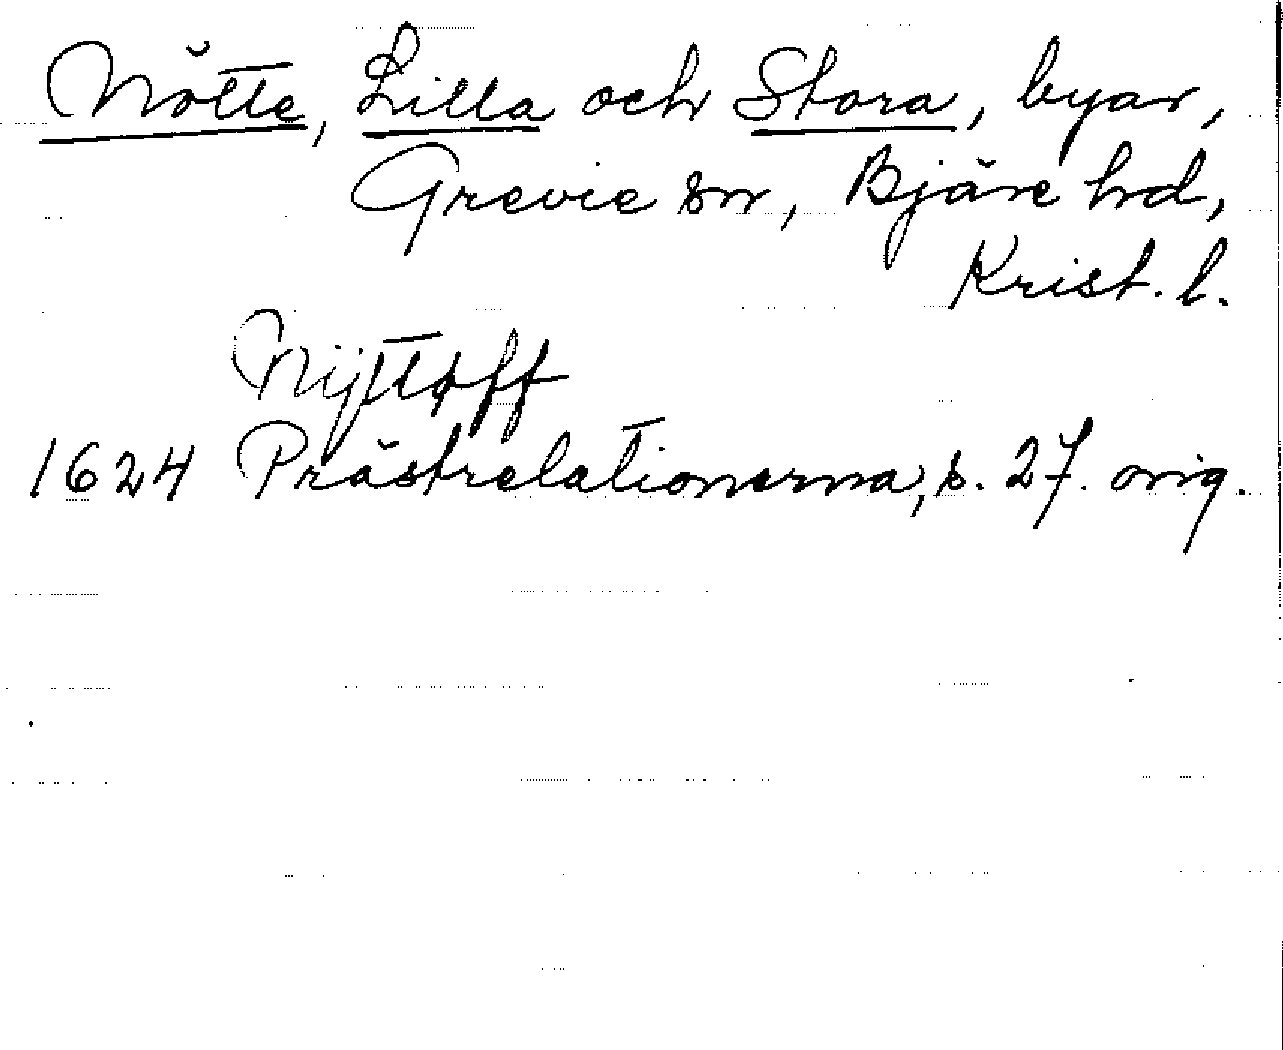 Nötte, Lilla och Stora, byar,
Grevie sn, Bjäre hd,
Krist. l.
Nijttøff
1624 Prästrelationerna, s. 27. orig.